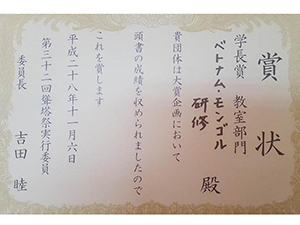 賞状
学長賞 教室部門
ベトナム・モンゴル
研修 殿
貴団体は大賞企画において
頭書の成績を収められましたので
これを賞します
平成二十八年十一月六日
第三十二回聳塔祭実行委員
委員長 吉田 睦